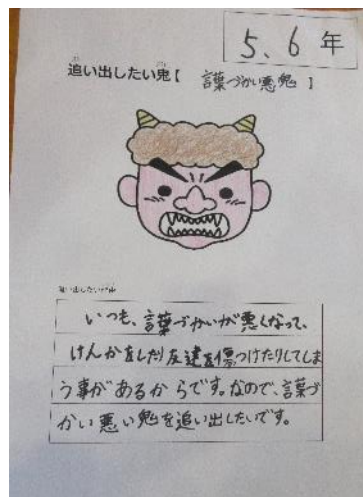 5、6年
追い出したい鬼【 言葉づかい悪鬼 】
追い出したい理由
いつも、言葉づかいが悪くなって、
けんかをしたり友達を傷つけたりしてしま
う事があるからです。なので、言葉づ
かい悪い鬼を追い出したいです。